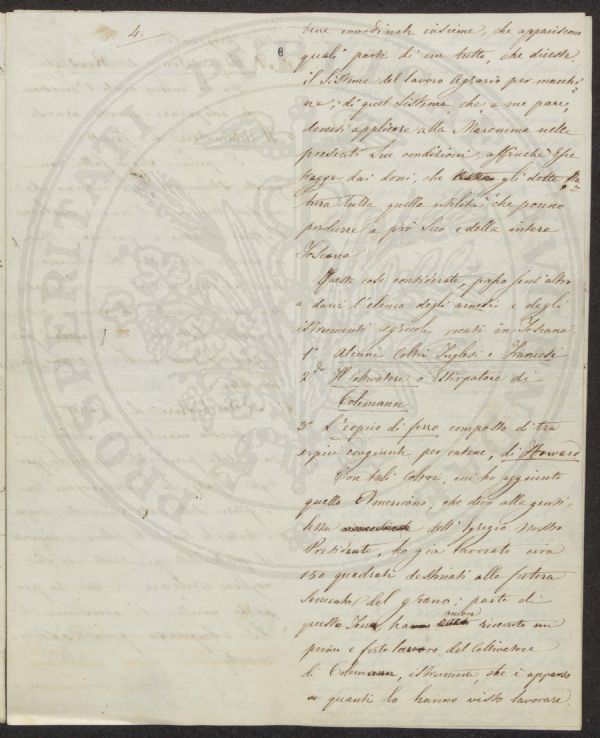 4.
bene coordinati insieme, che appariscono
quali parti di un tutto, che direste
il Sistema del lavoro Agrario per macchi-
ne; di quel Sistema che, a me pare,
doversi applicare alla Maremma nelle
presenti Sue condizioni, affinchè Essa
tragga dai doni, che gli dette Na-
tura tutta quella utilità che ponno
produrre a prò Suo e della intera
Toscana
Queste cose considerate, passo senz'altro
a darvi l'elenco degli arnesi e degli
istrumenti agricoli recati in Toscana.
1° Alcuni Coltri Inglesi e Francesi
2do Il Coltivatore o Estirpatore di
Colemann
3° L'erpice di ferro composto di tre
erpici congiunti per catene, di Howard
Con tali Coltri, cui ho aggiunto
quello Americano, che devo alla genti-
lezza dell'Egregio nostro
Presidente, ho già lavorato circa
150 quadrati destinati alla futura
Sementa del grano; parte di
questa Terra, ha ancora ricevuto un
primo e forte lavoro, del Coltivatore
di Colemann, istrumento, che è apparso
a quanti lo hanno visto lavorare,
PROSPERITATI PUBLICAE